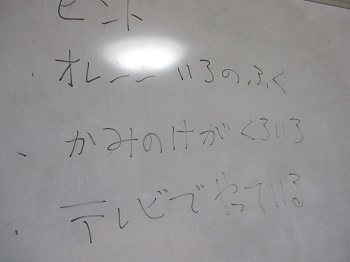 ヒント
・オレンジいろのふく
・かみのけがくろいろ
・テレビでやっている